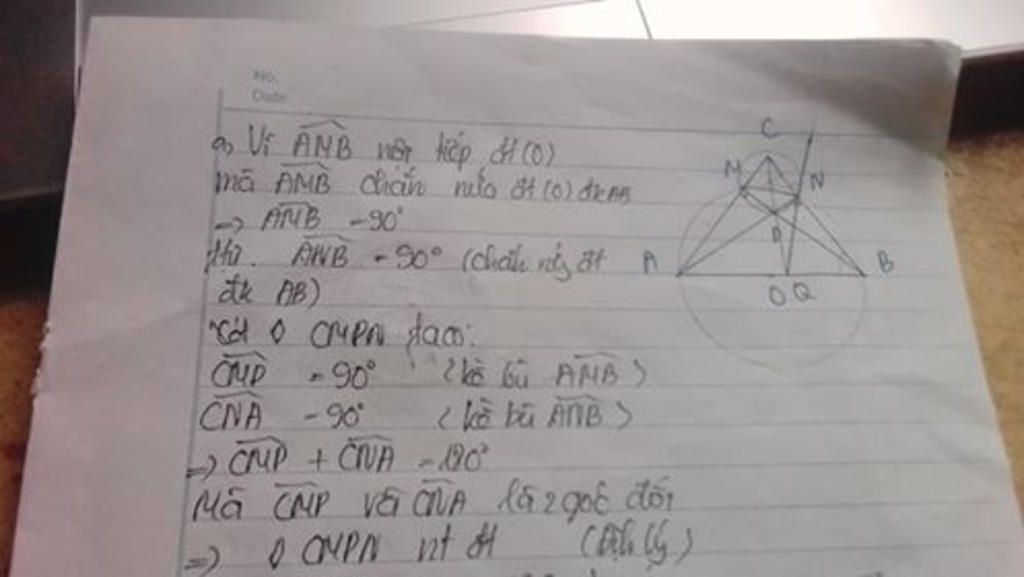 No.
Date
a, Vì AMB nội tiếp đt (O)
mà AMB chắn nửa đt (O) đk AB
=> AMB = 90°
ttự. ANB = 90° (chắn nửa đt
đk AB)
Xét ◊ CMPN ta có:
CMP = 90° (kề bù AMB)
CNA = 90° (kề bù ANB)
=> CMP + CNA = 180°
Mà CMP và CNA là 2 góc đối
=> ◊ CMPN nt đt (định lý)
C
M
N
P
A
B
O
Q